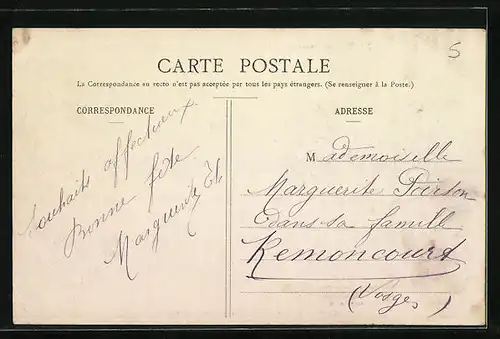 5
CARTE POSTALE
La Correspondance au recto n'est pas acceptée par tous les pays étrangers. (Se renseigner à la Poste.)
CORRESPONDANCE
Souhaits affectueux
Bonne fête
Marguerite
ADRESSE
Mademoiselle
Marguerite Poirson
dans sa famille
Remoncourt
(Vosges)